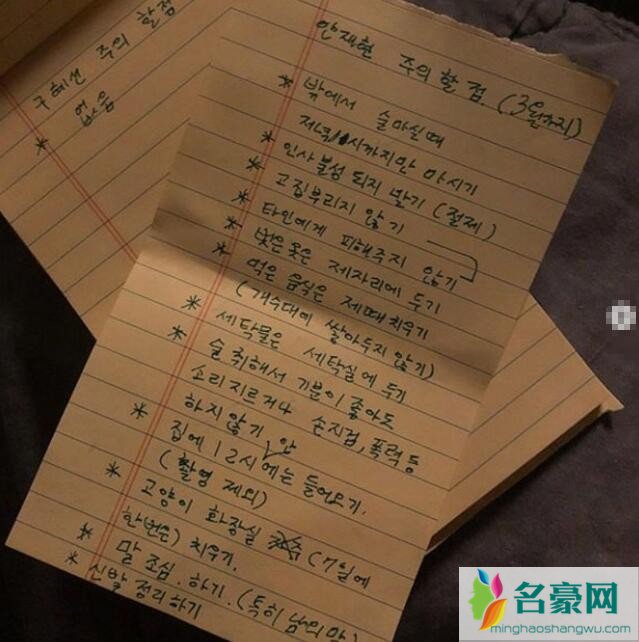 구혜선 주의 할점
* 없음
안재현 주의할점 (3일까지)
* 밖에서 술마실때
저녁 11시까지만 마시기
* 인사불성 되지 말기 (절제)
* 고집부리지 않기
* 타인에게 피해주지 않기
* 벗은 옷은 제자리에 두기
* 먹은 음식은 제때 치우기
(개수대에 쌓아두지 않기)
* 세탁물은 세탁실에 두기
* 술 취해서 기분이 좋아도
소리지르거나 손지검, 폭력 등
하지않기 안
* 집에 12시에는 들어오기.
(촬영 제외)
* 고양이 화장실 (7일에
한번은) 치우기.
* 말 조심. 하기. (특히 남의 말)
* 신발 정리하기
名豪网
minghaoshangwu.com